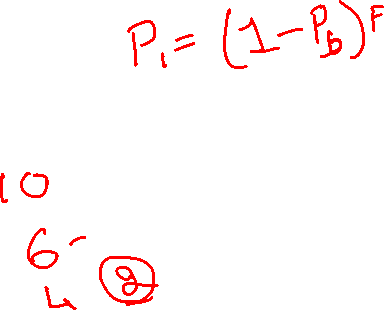 P₁ = (1 - P_b)^F
10
6 -
4 2